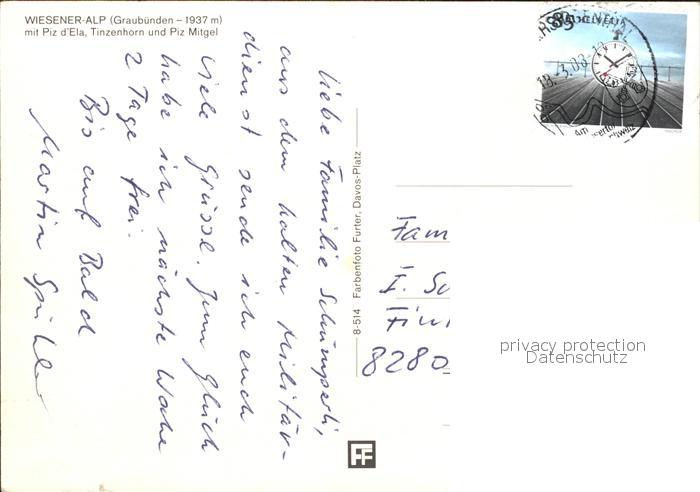 WIESENER-ALP (Graubünden – 1937 m)
mit Piz d'Ela, Tinzenhorn und Piz Mitgel
Liebe Familie Schümperli,
aus dem kalten Militär-
dienst sende ich euch
viele Grüsse. Zum Glück
habe ich nächste Woche
2 Tage frei.
Bis auf Bald
Martin
8-514 Farbenfoto Furter, Davos-Platz
FF
85
Fam
I. Sc
8280
privacy protection
Datenschutz